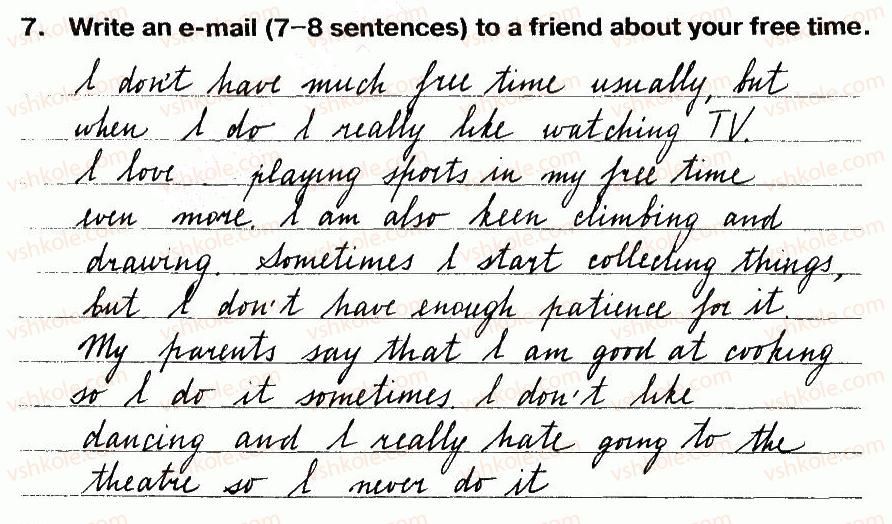 7. Write an e-mail (7–8 sentences) to a friend about your free time.
I don't have much free time usually, but
when I do I really like watching TV.
I love playing sports in my free time
even more. I am also keen climbing and
drawing. Sometimes I start collecting things,
but I don't have enough patience for it.
My parents say that I am good at cooking
so I do it sometimes. I don't like
dancing and I really hate going to the
theatre so I never do it